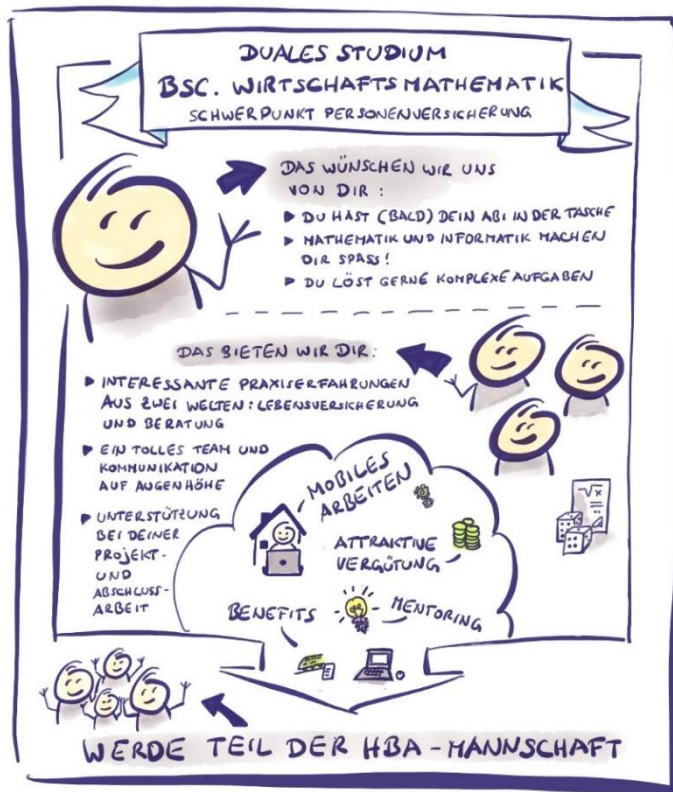 DUALES STUDIUM
BSC. WIRTSCHAFTSMATHEMATIK
SCHWERPUNKT PERSONENVERSICHERUNG
DAS WÜNSCHEN WIR UNS
VON DIR:
▶ DU HAST (BALD) DEIN ABI IN DER TASCHE
▶ MATHEMATIK UND INFORMATIK MACHEN
DIR SPASS!
▶ DU LÖST GERNE KOMPLEXE AUFGABEN
DAS BIETEN WIR DIR:
▶ INTERESSANTE PRAXISERFAHRUNGEN
AUS ZWEI WELTEN: LEBENSVERSICHERUNG
UND BERATUNG
▶ EIN TOLLES TEAM UND
KOMMUNIKATION
AUF AUGENHÖHE
▶ UNTERSTÜTZUNG
BEI DEINER
PROJEKT-
UND
ABSCHLUSS-
ARBEIT
MOBILES
ARBEITEN
ATTRAKTIVE
VERGÜTUNG
BENEFITS
MENTORING
√x
WERDE TEIL DER HBA-MANNSCHAFT